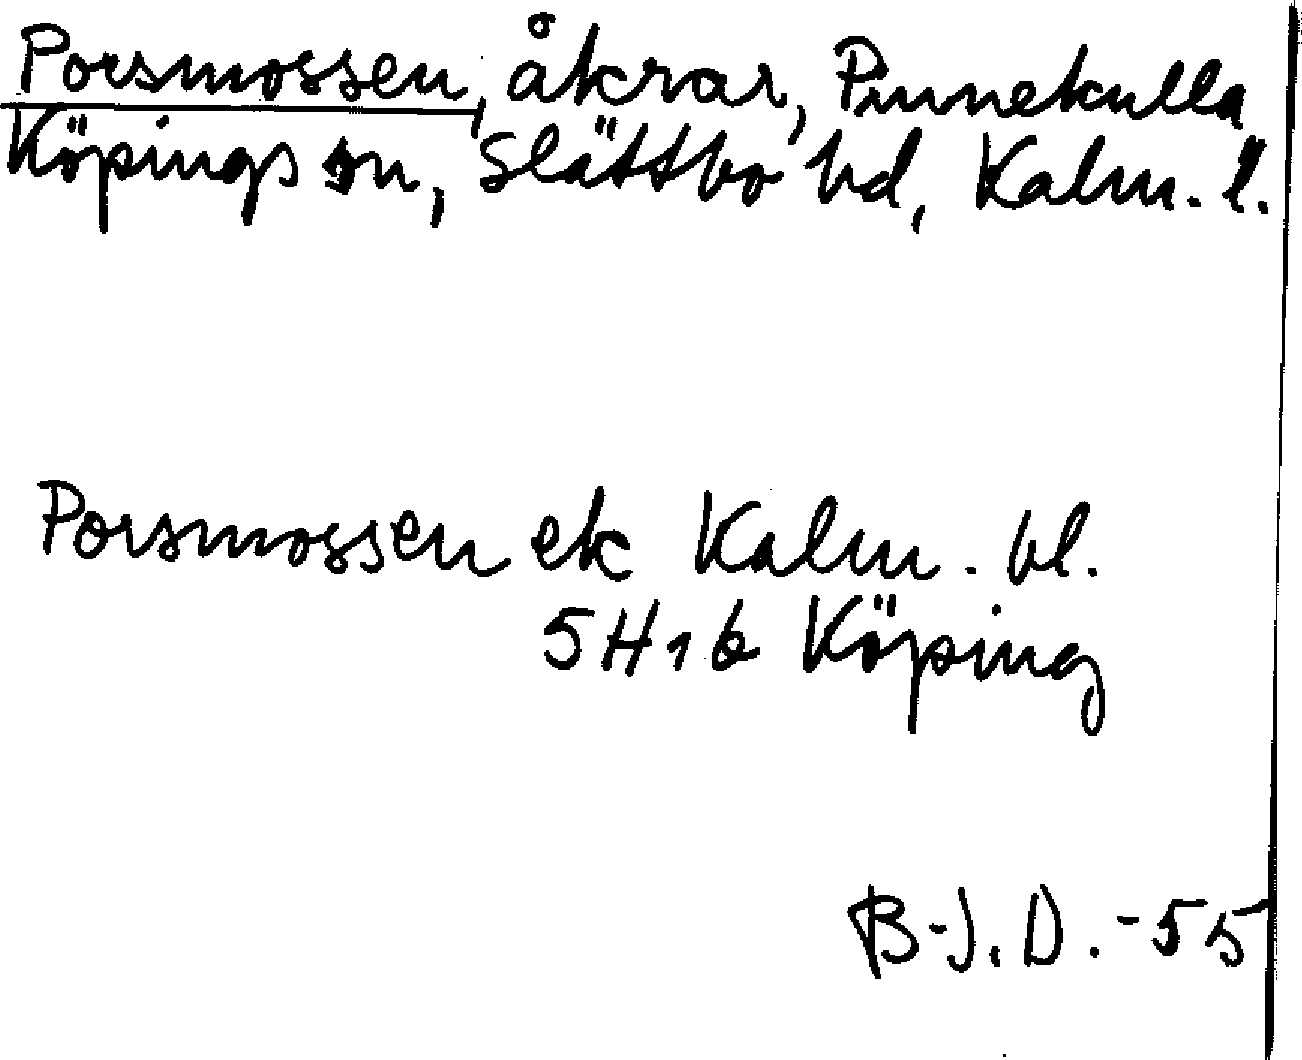 Porsmossen, åkrar, Pinnekulla
Köpings sn, Slättbo hd, Kalm. l.
Porsmossen ek Kalm. bl.
5H1b Köping
B-J.D.-55